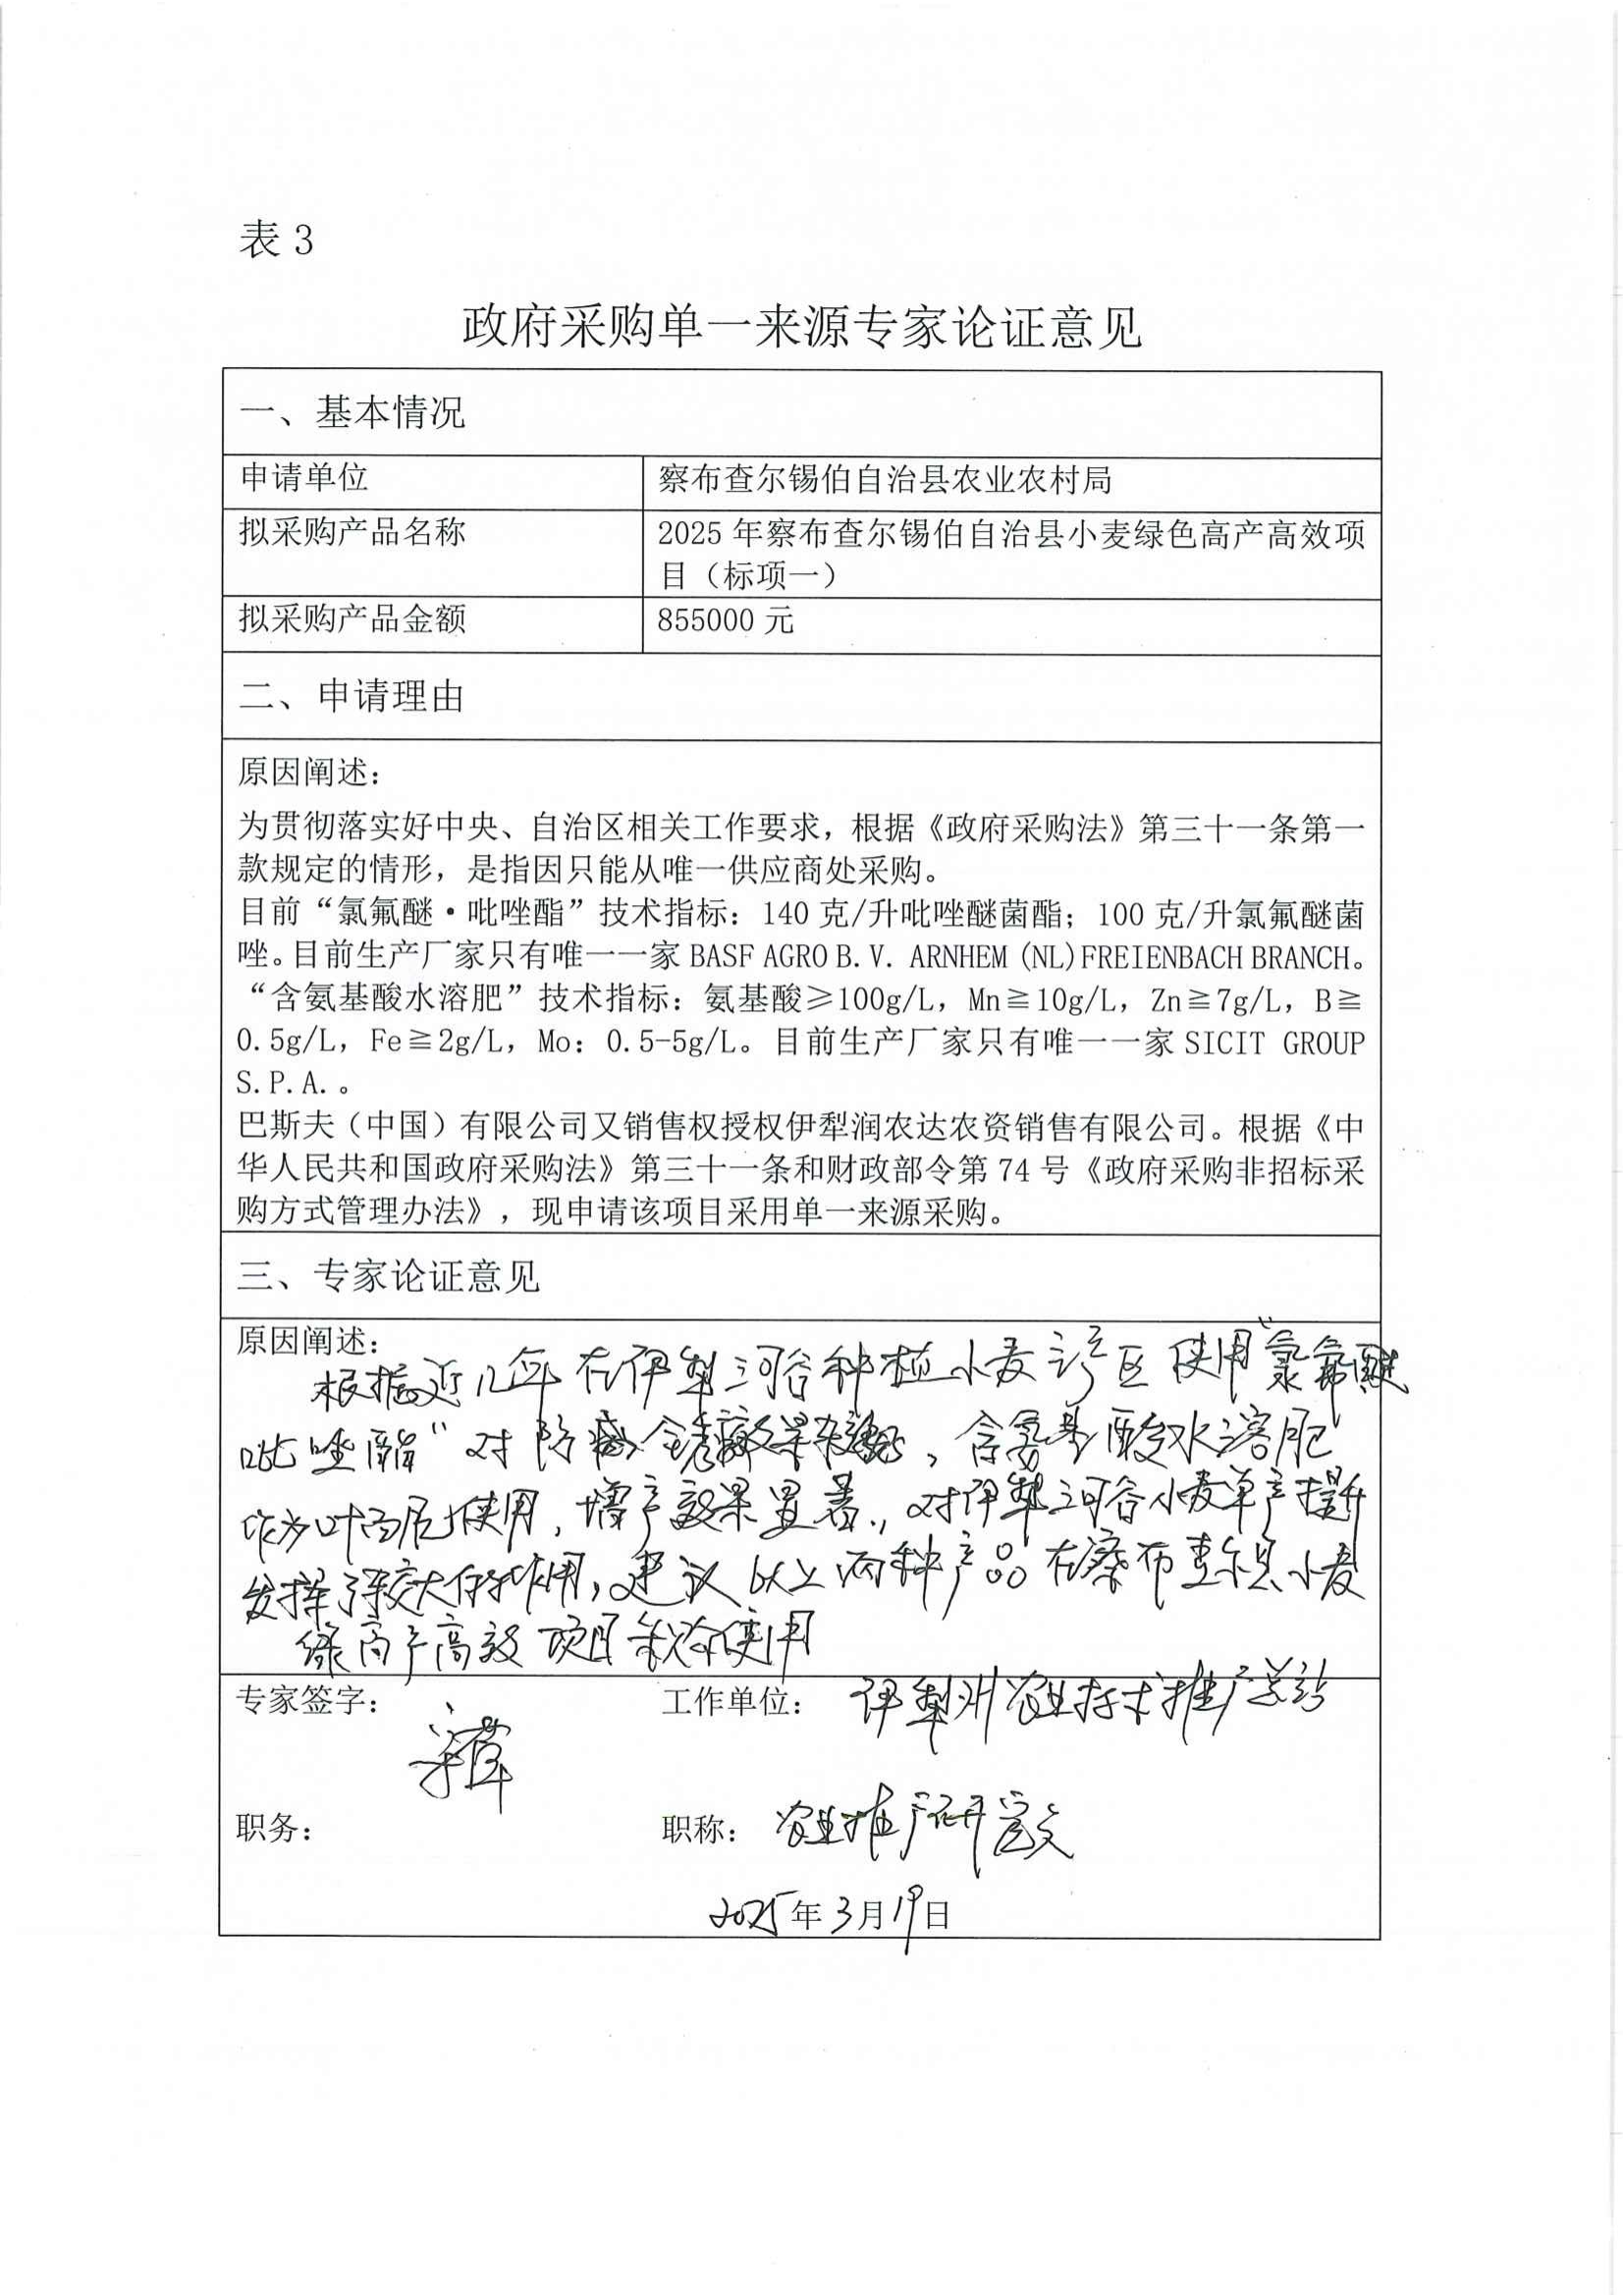 表 3
政府采购单一来源专家论证意见
一、基本情况
申请单位
察布查尔锡伯自治县农业农村局
拟采购产品名称
2025 年察布查尔锡伯自治县小麦绿色高产高效项
目（标项一）
拟采购产品金额
855000 元
二、申请理由
原因阐述：
为贯彻落实好中央、自治区相关工作要求，根据《政府采购法》第三十一条第一
款规定的情形，是指因只能从唯一供应商处采购。
目前“氯氟醚·吡唑酯”技术指标：140 克/升吡唑醚菌酯；100 克/升氯氟醚菌
唑。目前生产厂家只有唯一一家 BASF AGRO B.V. ARNHEM (NL)FREIENBACH BRANCH。
“含氨基酸水溶肥”技术指标：氨基酸≥100g/L，Mn≧10g/L，Zn≧7g/L，B≧
0.5g/L，Fe≧2g/L，Mo：0.5-5g/L。目前生产厂家只有唯一一家 SICIT GROUP
S.P.A.。
巴斯夫（中国）有限公司又销售权授权伊犁润农达农资销售有限公司。根据《中
华人民共和国政府采购法》第三十一条和财政部令第 74 号《政府采购非招标采
购方式管理办法》，现申请该项目采用单一来源采购。
三、专家论证意见
原因阐述：
根据近几年在伊犁河谷种植小麦产区使用“氯氟醚
吡唑酯”对防 锈病效果 ，含氨基酸水溶肥
作为叶面肥使用，增产效果显著，对伊犁河谷小麦单产提升
发挥了较大的作用，建议以上两种产品在察布查尔县小麦
绿高产高效项目 使用
专家签字：
工作单位： 伊犁州农业技术推广总站
职务：
职称： 农业推广研究员
2025年3月19日